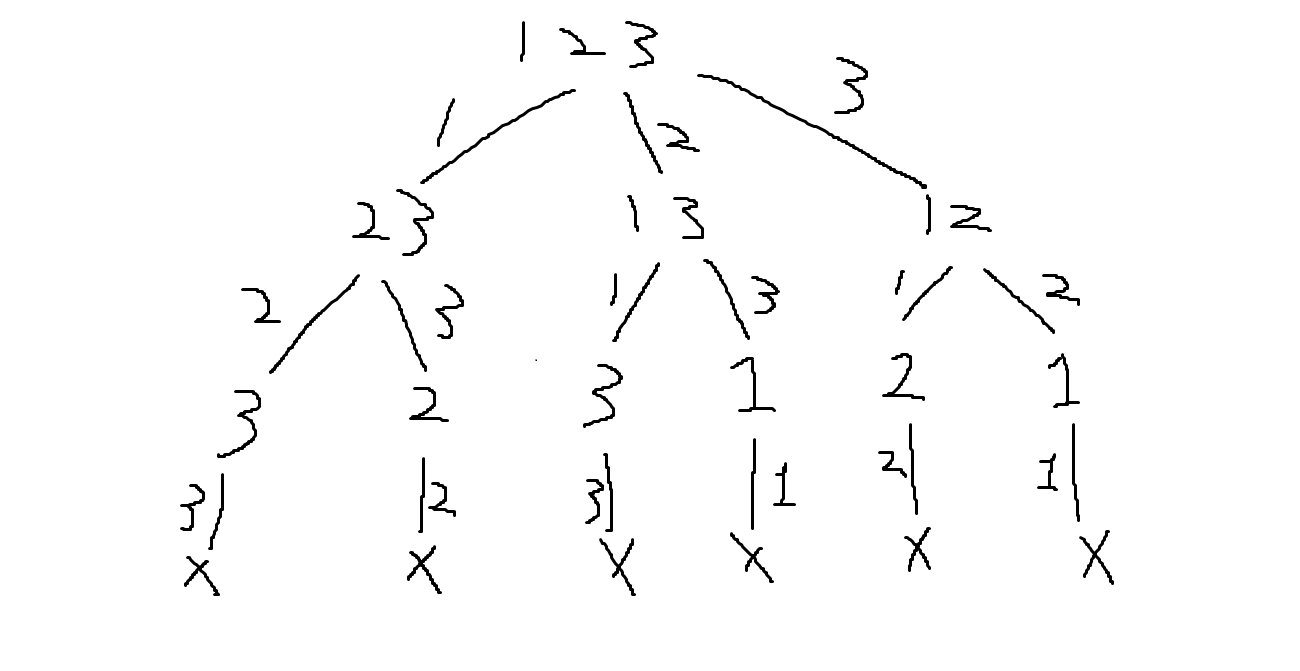 1 2 3
1 2 3
23 1 3 12
2 3 1 3 1 2
3 2 3 1 2 1
3 2 3 1 2 1
X X X X X X